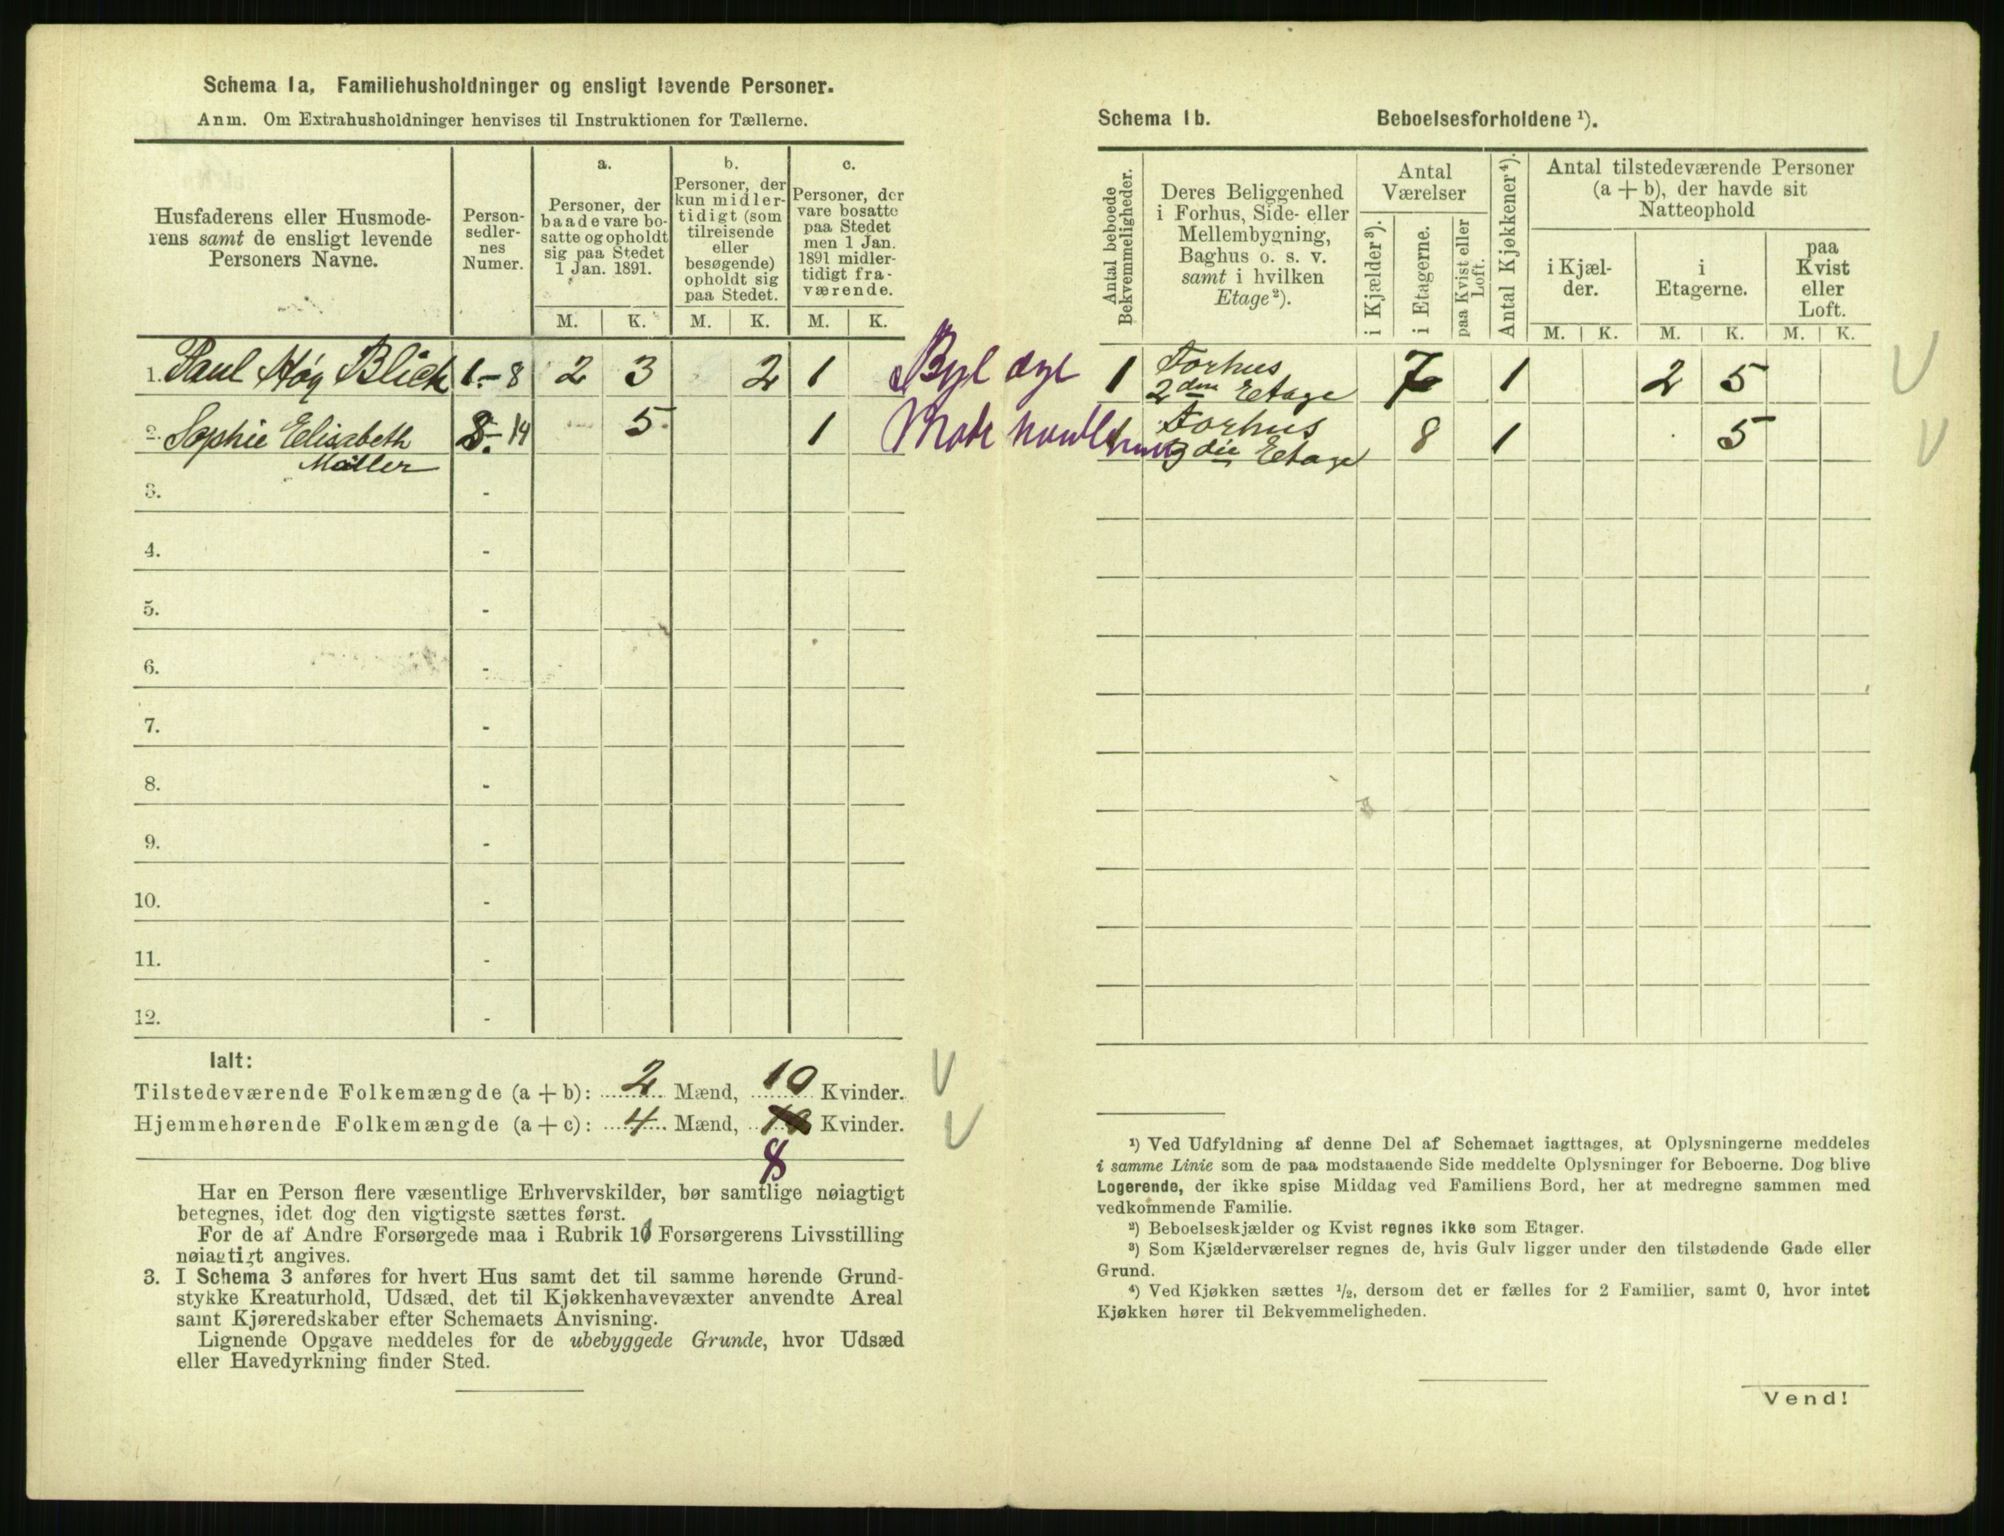 Schema 1a, Familiehusholdninger og ensligt levende Personer.
Anm. Om Extrahusholdninger henvises til Instruktionen for Tællerne.
Husfaderens eller Husmode-
rens samt de ensligt levende
Personers Navne.
Person-
sedler-
nes
Numer.
a.
Personer, der
baade vare bo-
satte og opholdt
sig paa Stedet
1 Jan. 1891.
b.
Personer, der
kun midler-
tidigt (som
tilreisende
eller
besøgende)
opholdt sig
paa Stedet.
c.
Personer, der
vare bosatte
paa Stedet
men 1 Jan.
1891 midler-
tidigt fra-
værende.
M. K. M. K. M. K.
1. Paul Høg Blich 1.-8 2 3 2 1
2. Sophie Elisabeth 8.-14 5 1
Møller
3. -
4. -
5. -
6. -
7. -
8. -
9. -
10. -
11. -
12. -
Ialt:
Tilstedeværende Folkemængde (a + b): 2 Mænd, 10 Kvinder.
Hjemmehørende Folkemængde (a + c): 4 Mænd, 10 Kvinder.
8
Har en Person flere væsentlige Erhvervskilder, bør samtlige nøiagtigt
betegnes, idet dog den vigtigste sættes først.
For de af Andre Forsørgede maa i Rubrik 10 Forsørgerens Livsstilling
nøiagtigt angives.
3. I Schema 3 anføres for hvert Hus samt det til samme hørende Grund-
stykke Kreaturhold, Udsæd, det til Kjøkkenhavevæxter anvendte Areal
samt Kjøreredskaber efter Schemaets Anvisning.
Lignende Opgave meddeles for de ubebyggede Grunde, hvor Udsæd
eller Havedyrkning finder Sted.
Schema 1b. Beboelsesforholdene ¹).
Antal beboede
Bekvemmeligheder.
Deres Beliggenhed
i Forhus, Side- eller
Mellembygning,
Baghus o. s. v.
samt i hvilken
Etage ²).
Antal
Værelser
i Kjælder ³).
i Etagerne.
paa Kvist eller
Loft.
Antal Kjøkkener ⁴).
Antal tilstedeværende Personer
(a + b), der havde sit
Natteophold
i Kjæl-
der.
i
Etagerne.
paa
Kvist
eller
Loft.
M. K. M. K. M. K.
1 Forhus 7 1 2 5
2den Etage
Forhus 8 1 5
3die Etage
¹) Ved Udfyldning af denne Del af Schemaet iagttages, at Oplysningerne meddeles
i samme Linie som de paa modstaaende Side meddelte Oplysninger for Beboerne. Dog blive
Logerende, der ikke spise Middag ved Familiens Bord, her at medregne sammen med
vedkommende Familie.
²) Beboelseskjælder og Kvist regnes ikke som Etager.
³) Som Kjælderværelser regnes de, hvis Gulv ligger under den tilstødende Gade eller
Grund.
⁴) Ved Kjøkken sættes ¹/₂, dersom det er fælles for 2 Familier, samt 0, hvor intet
Kjøkken hører til Bekvemmeligheden.
Vend!